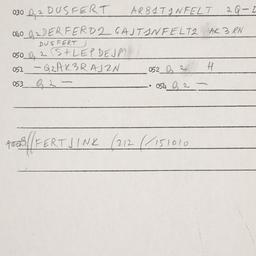 030 Q2 DUSFERT ARB1T1NFELT 2Q-
040 Q2 DERFERD2 GAJT1NFELT2 AK3RN
DUSFERT
050 Q2 (S+LEPDEJM
051 - G2AK3RAJ2N 052 Q2 H
053 Q2 - 054 Q2 -
((FERTJINK (212 (/151010